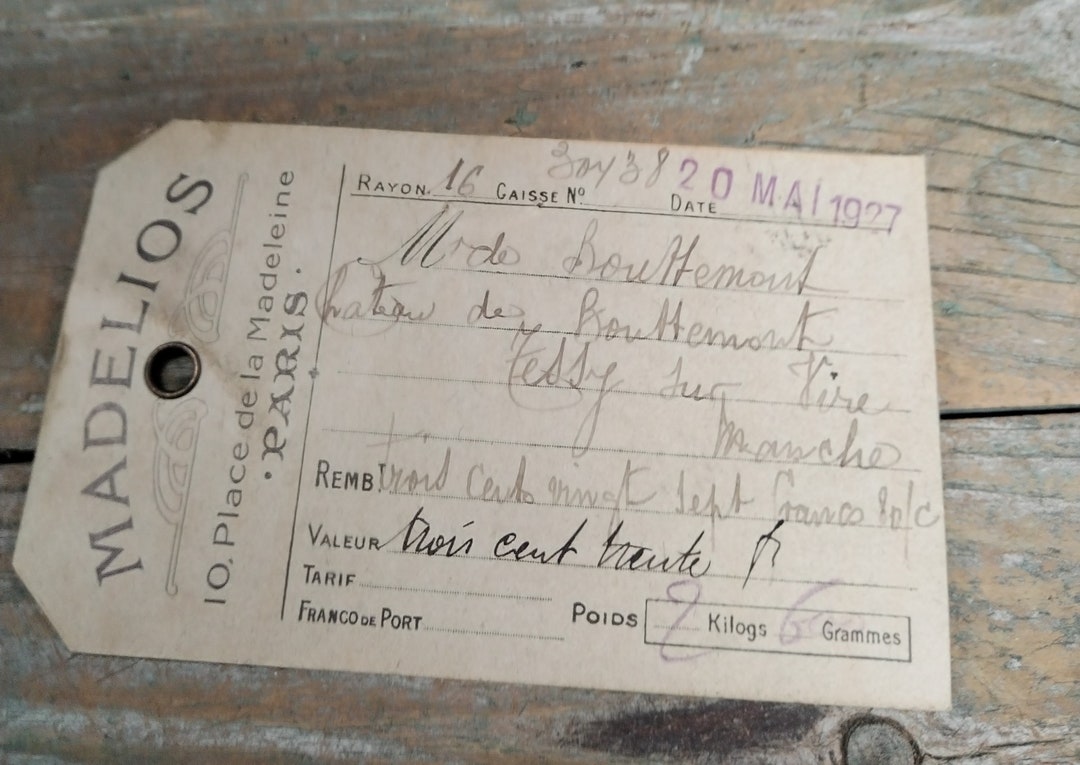 MADELIOS
10, Place de la Madeleine
· PARIS ·
RAYON 16 CAISSE Nº DATE 20 MAI 1927
Mr de Bouttemont
Chateau de Bouttemont
Tessy sur Vire
Manche
REMBT trois cents vingt sept francs 80/c
VALEUR trois cent trente fr
TARIF
FRANCO DE PORT
POIDS 2 Kilogs 6 Grammes